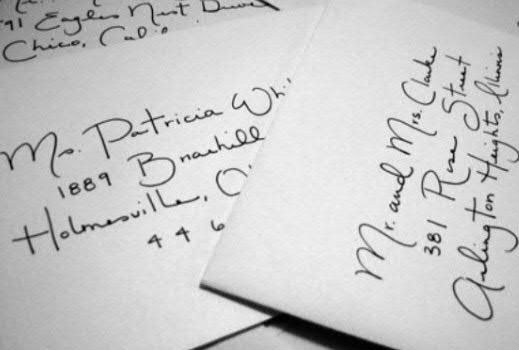 91 Eagles Nest Drive
Chico, Calif
Ms. Patricia Whi
1889 Braehill
Holmesville, O
4 4 6
Mr. and Mrs. Clarke
381 Rose Street
Arlington Heights, Illinois